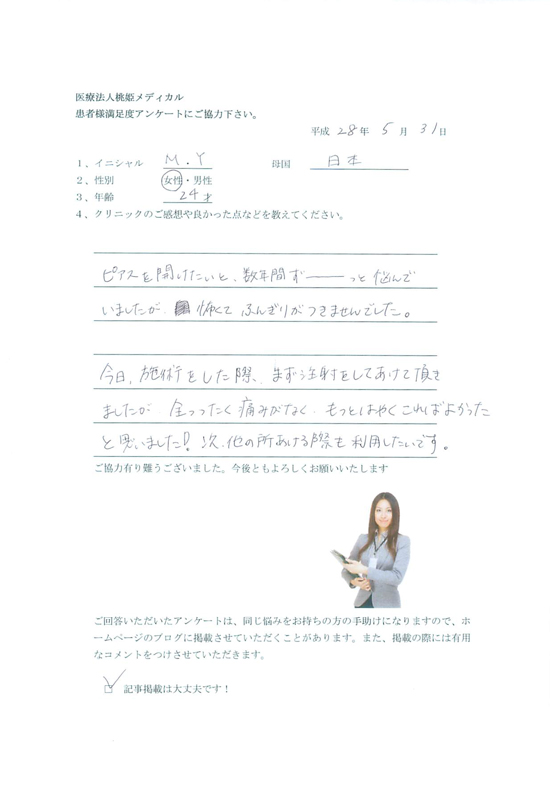 医療法人桃姫メディカル
患者様満足度アンケートにご協力下さい。
平成 28 年 5 月 31 日
1、イニシャル M.Y 母国 日本
2、性別 女性・男性
3、年齢 24才
4、クリニックのご感想や良かった点などを教えてください。
ピアスを開けたいと、数年間ず――っと悩んで
いましたが、怖くて ふんぎりがつきませんでした。
今日、施術をした際、まず注射をしてあけて頂き
ましたが、全ったく痛みがなく、もっとはやくこればよかった
と思いました! 次、他の所あける際も利用したいです。
ご協力有り難うございました。今後ともよろしくお願いいたします
ご回答いただいたアンケートは、同じ悩みをお持ちの方の手助けになりますので、ホ
ームページのブログに掲載させていただくことがあります。また、掲載の際には有用
なコメントをつけさせていただきます。
記事掲載は大丈夫です!